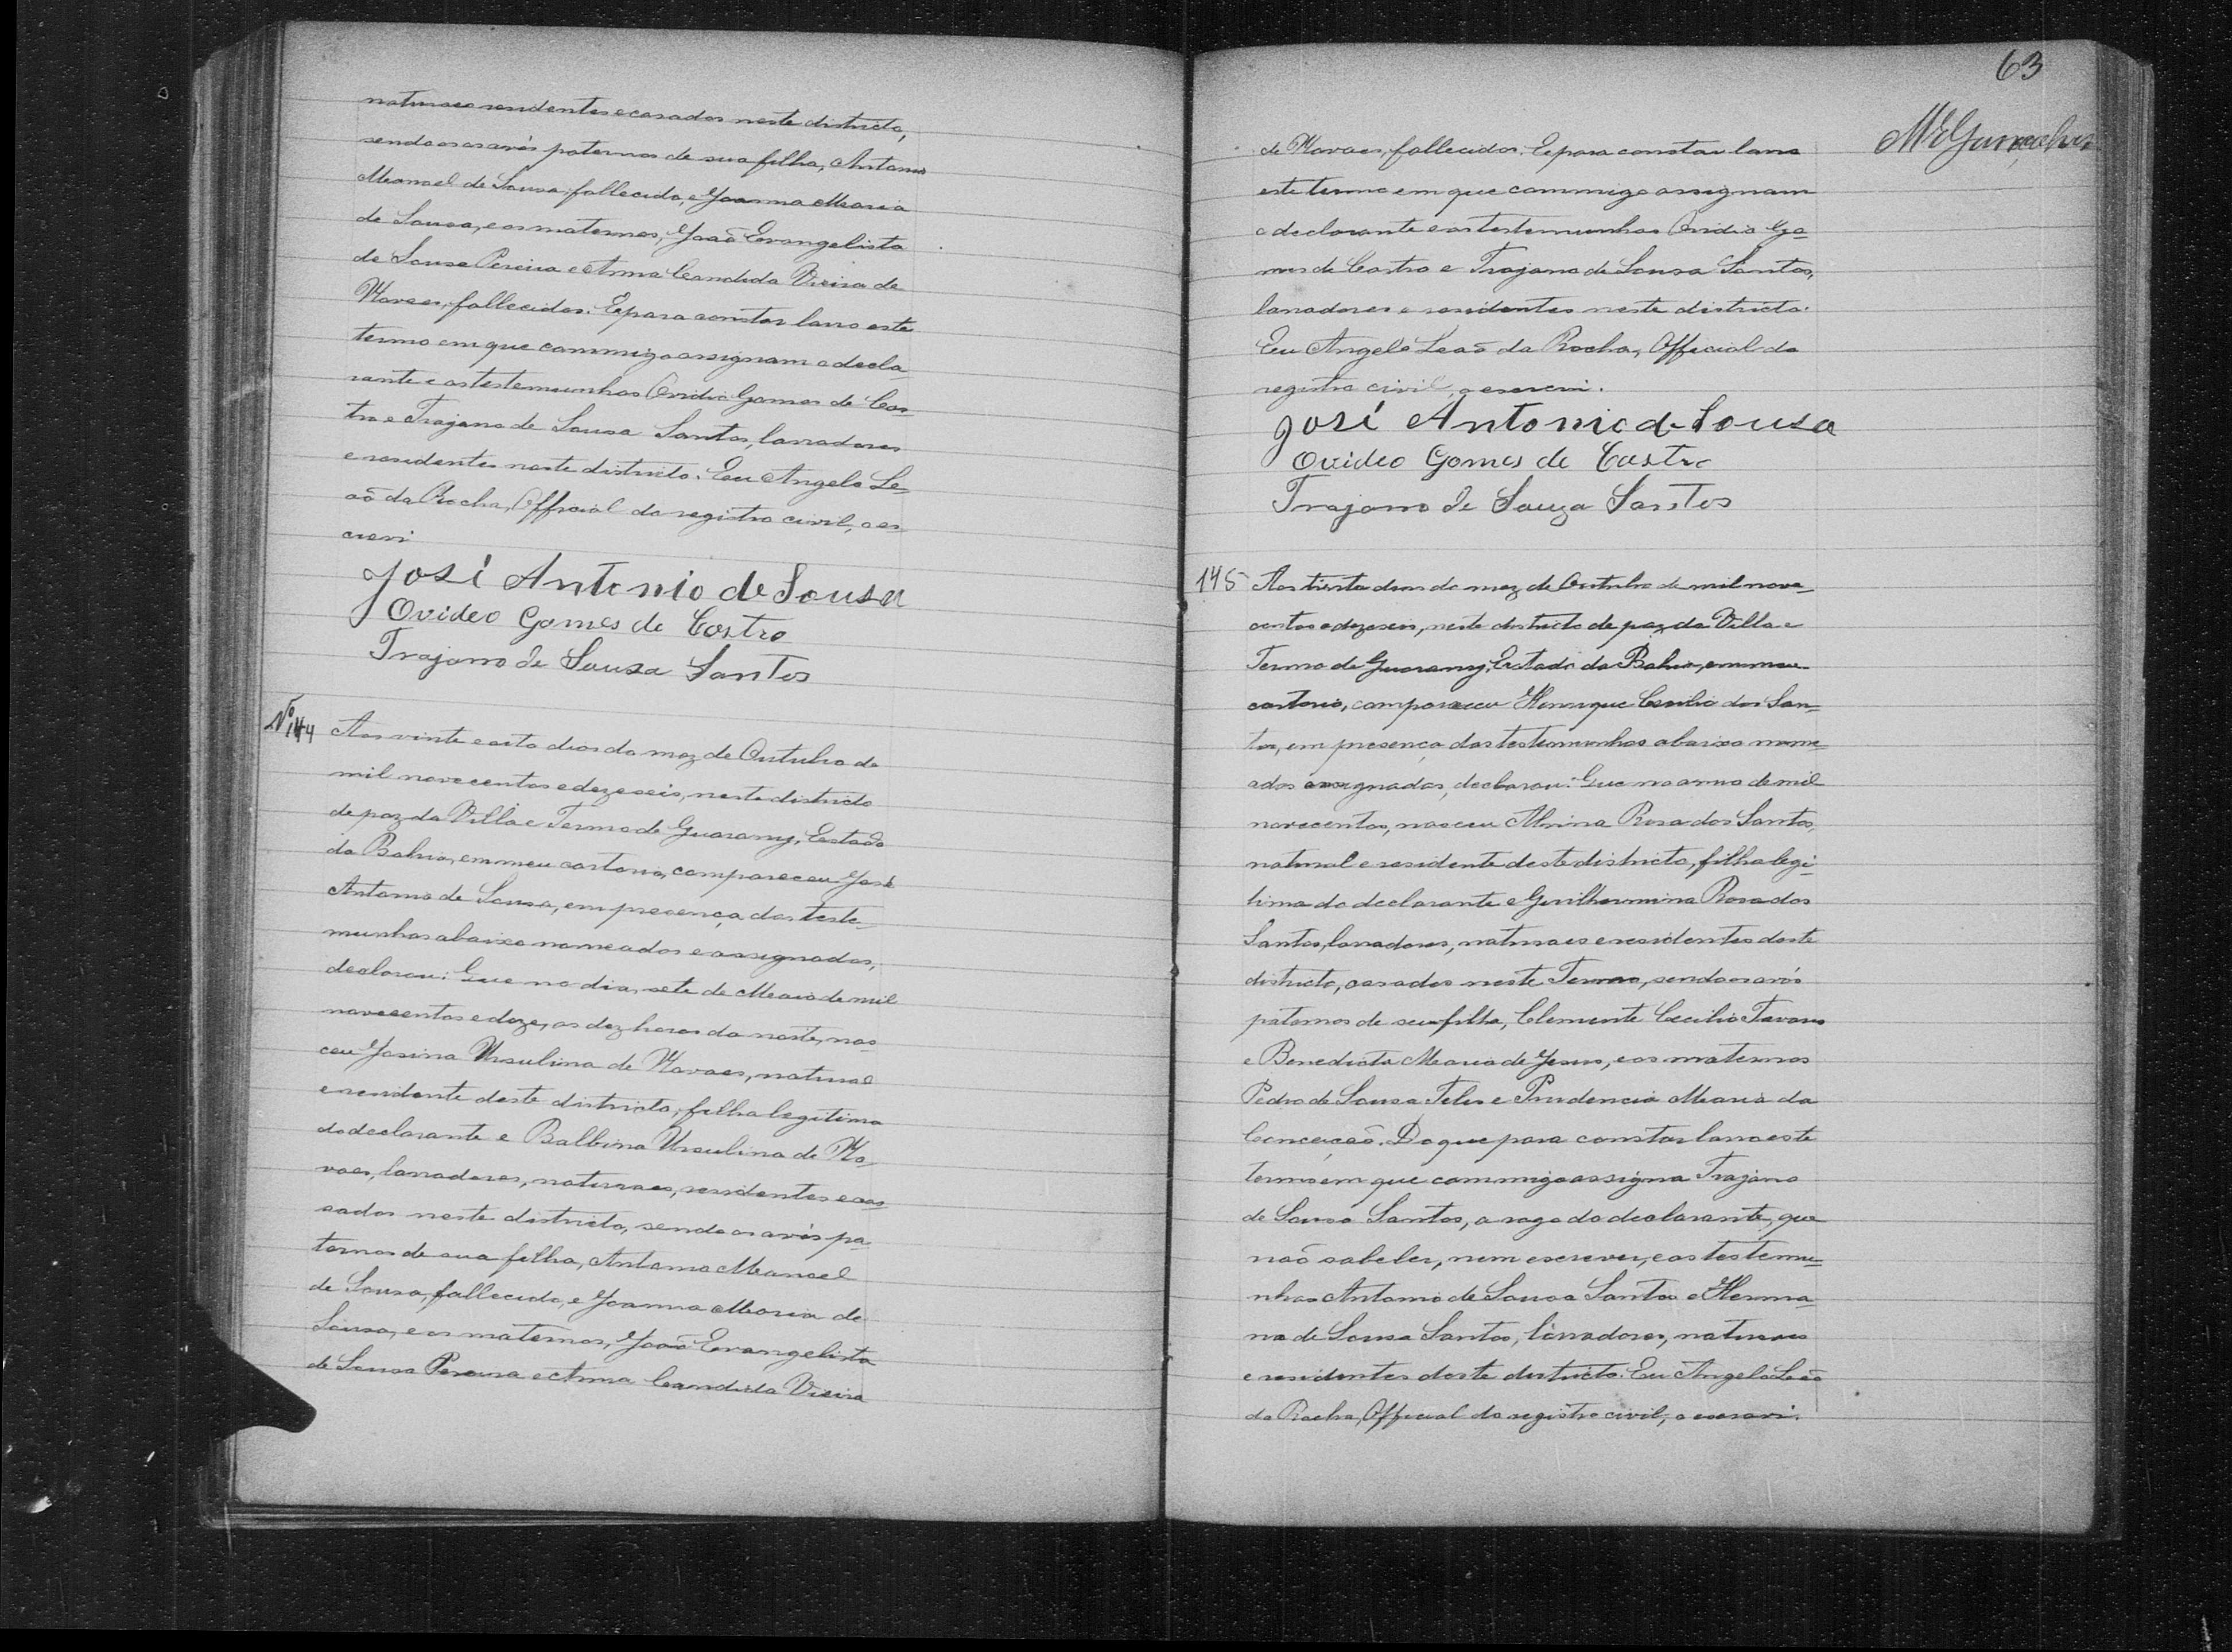 naturaes residentes e casados neste districto,
sendo os avós paternos de sua filha, Antonio
Manoel de Sousa, fallecido, e Joanna Maria
de Sousa, e os maternos, João Evangelista
de Sousa Pereira e Anna Candida Vieira de
Novaes, fallecidos. E para constar lavro este
termo em que commigo assignam o decla-
rante e as testemunhas Ovidio Gomes de Cas-
tro e Trajano de Sousa Santos, lavradores
e residentes neste districto. Eu Angelo Le-
aõ da Rocha, Official do registro civil, o es-
crevi
José Antonio de Sousa
Ovideo Gomes de Castro
Trajano de Sousa Santos
Nº 144
Aos vinte e oito dias do mez de Outubro de
mil novecentos e dezeseis, neste districto
de paz da Villa e Termo de Guarany, Estado
da Bahia, em meu cartorio, compareceu José
Antonio de Sousa, em presença das teste-
munhas abaixo nomeadas e assignadas,
declarou: Que no dia, sete de Maio de mil
novecentos e doze, as dez horas da noite, nas-
ceu Josina Ursulina de Novaes, natural
e residente deste districto, filha legitima
do declarante e Balbina Ursulina de No-
vaes, lavradores, naturaes, residentes e ca-
sados neste districto, sendo os avós pa-
ternos de sua filha, Antonio Manoel
de Sousa, fallecido, e Joanna Maria de
Sousa, e os maternos, João Evangelista
de Sousa Pereira e Anna Candida Vieira
63
MEGonçalves
de Novaes, fallecidos. E para constar lavro
este termo em que commigo assignam
o declarante e as testemunhas Ovidio Go-
mes de Castro e Trajano de Sousa Santos,
lavradores e residentes neste districto.
Eu Angelo Leaõ da Rocha, Official do
registro civil, o escrevi.
José Antonio de Sousa
Ovideo Gomes de Castro
Trajano de Souza Santos
145
Aos trinta dias do mez de Outubro de mil nove-
centos e dezeseis, neste districto de paz da Villa e
Termo de Guarany, Estado da Bahia, em meu
cartorio, compareceu Henrique Cecilio dos San-
tos, em presença das testemunhas abaixo nome-
adas assignadas, declarou: Que no anno de mil
novecentos, nasceu Rosa dos Santos,
natural e residente deste districto, filha legi-
tima do declarante e Guilhermina Rosa dos
Santos, lavradores, naturaes e residentes deste
districto, casados neste Termo, sendo os avós
paternos de sua filha, Clemente Cecilio Tavares
e Benedicta Maria de Jesus, e os maternos
Pedro de Sousa Teles e Prudencia Maria da
Conceiçaõ. Do que para constar lavro este
termo em que commigo assigna Trajano
de Sousa Santos, a rogo do declarante, que
naõ sabe ler, nem escrever, e as testemu-
nhas Antonio de Sousa Santos e Herma-
no de Sousa Santos, lavradores, naturaes
e residentes deste districto. Eu Angelo Leão
da Rocha, Official do registro civil, o escrevi.